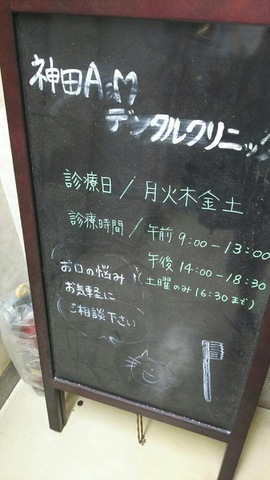 神田A&M
デンタルクリニック
診療日/月火木金土
診療時間/午前9:00-13:00
午後14:00-18:30
(土曜のみ16:30まで)
お口の悩み
お気軽に
ご相談下さい